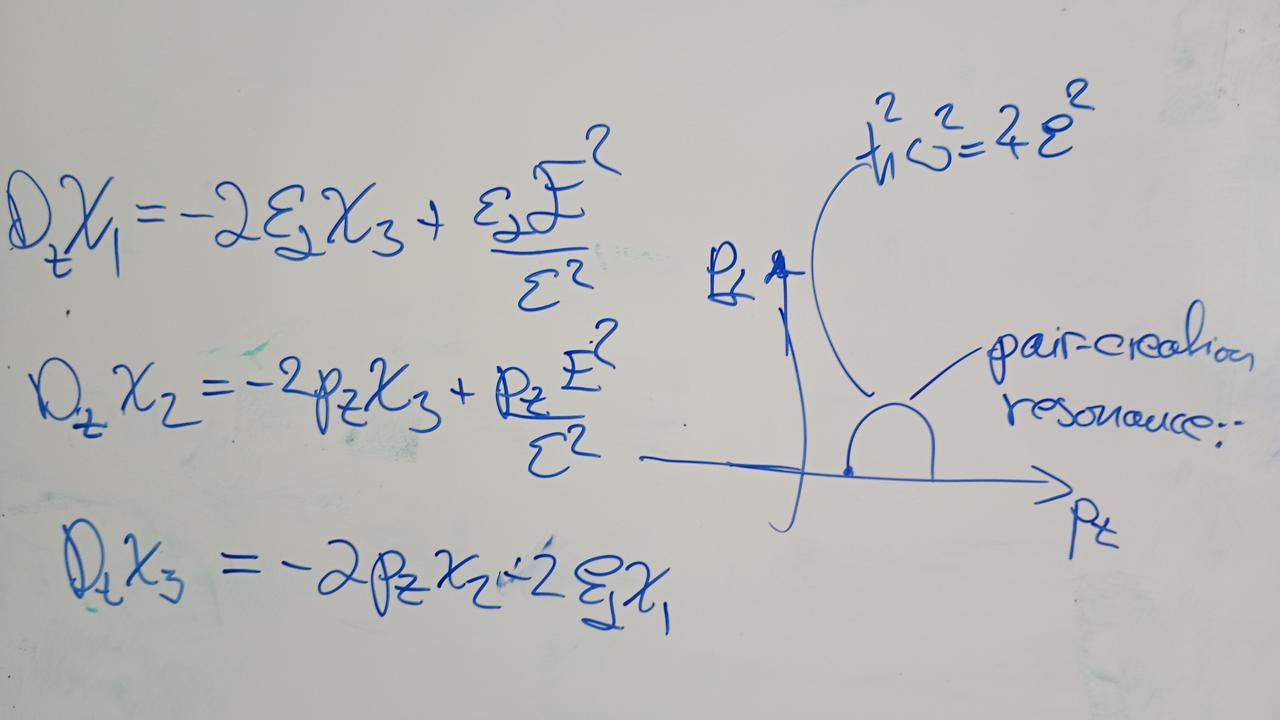 D_z χ_1 = -2 ε_⊥ χ_3 + ε_⊥ E^2 / ε^2
D_z χ_2 = -2 p_z χ_3 + p_z E^2 / ε^2
D_z χ_3 = -2 p_z χ_2 - 2 ε_⊥ χ_1
ħ^2 ω^2 = 4 ε^2
p_⊥
pair-creation
resonance:-
p_z